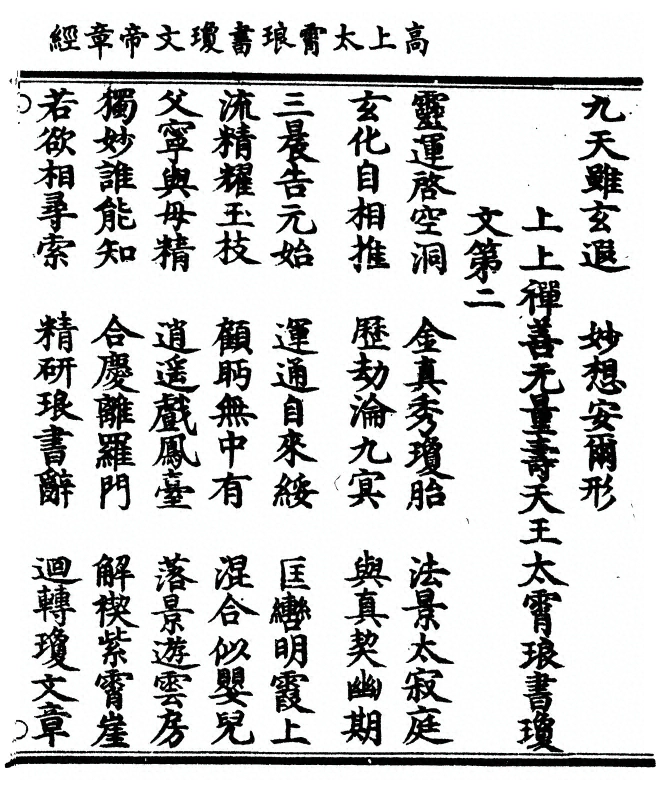 高上太霄琅書瓊文帝章經
九天雖玄遐 妙想安爾形
上上禪善无量壽天王太霄琅書瓊
文第二
靈運啓空洞 金真秀瓊胎 法景太寂庭
玄化自相推 歷劫淪九冥 與真契幽期
三晨告元始 運通自來綏 匡轡明霞上
流精耀玉技 顧眄無中有 混合似嬰兒
父寧與母精 逍遥戲鳳臺 落景遊雲房
獨妙誰能知 合慶離羅門 解稧紫霄崖
若欲相尋索 精研琅書辭 迴轉瓊文章